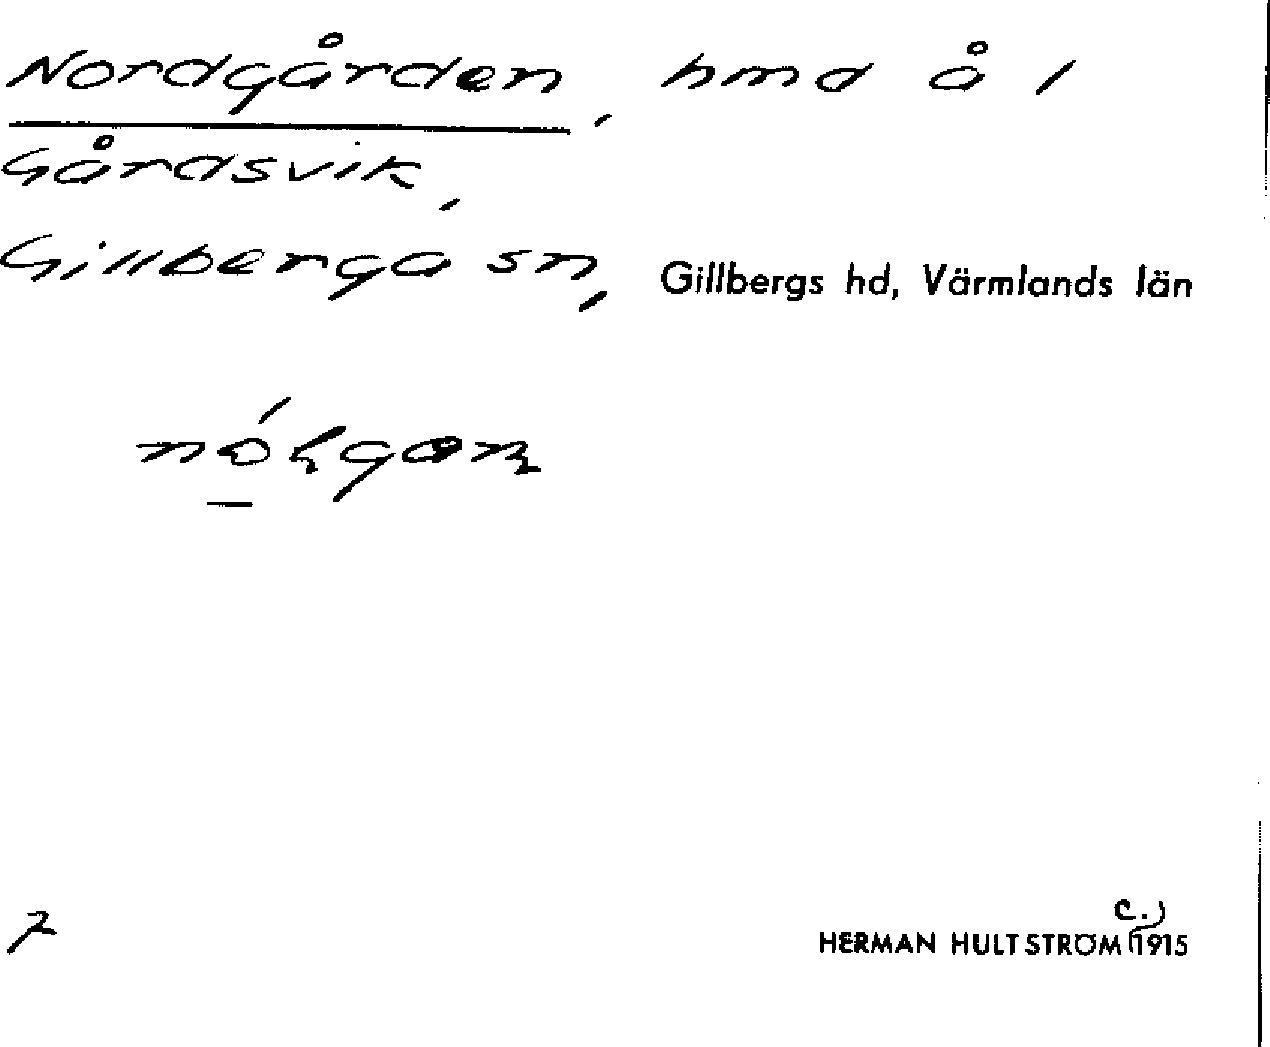 Nordgården, hmd å 1
Gårdsvik,
Gillberga sn, Gillbergs hd, Värmlands län
7
c.)
HERMAN HULTSTRÖM 1915